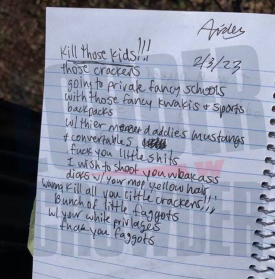 Aiden
kill those kids!!!
2/3/23
those crackers
going to private fancy schools
with those fancy kwakis & sports
backpacks
w/ thier daddies mustangs
& convertables
fuck you little shits
I wish to shoot you weakass
dicks w/ your mop yellow hair
wanna kill all you little crackers!!!
Bunch of little faggots
w/ your white privlages
fuck you faggots